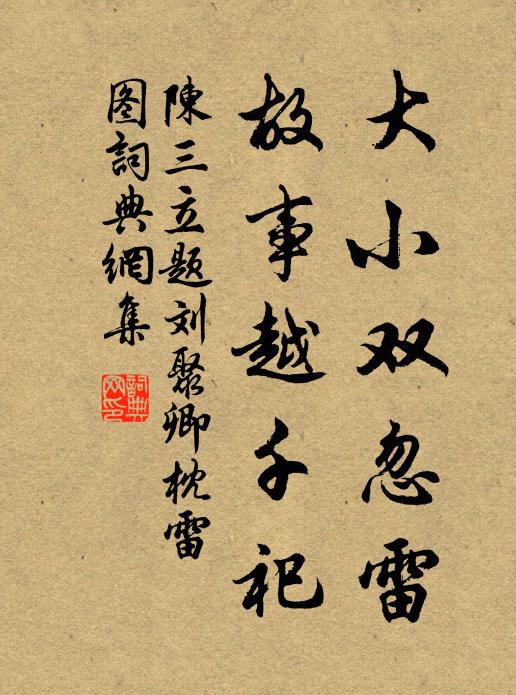 大小双忽雷
故事越千祀
陳三立题刘聚卿枕雷
图詞典網集
詞典
网印